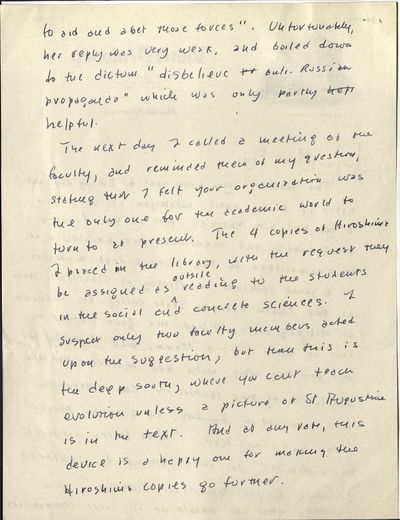 to aid and abet those forces". Unfortunately,
her reply was very weak, and boiled down
to the dictum "disbelieve anti-Russian
propaganda" which was only partly
helpful.
The next day I called a meeting of the
faculty, and reminded them of my question,
stating that I felt your organization was
the only one for the academic world to
turn to at present. The 4 copies of Hiroshima
I placed in the library, with the request they
be assigned as outside reading to the students
in the social and concrete sciences. I
suspect only two faculty members acted
upon the suggestion, but then this is
the deep south, where you can't teach
evolution unless a picture of St Augustine
is in the text. And at any rate, this
device is a happy one for making the
Hiroshima copies go further.